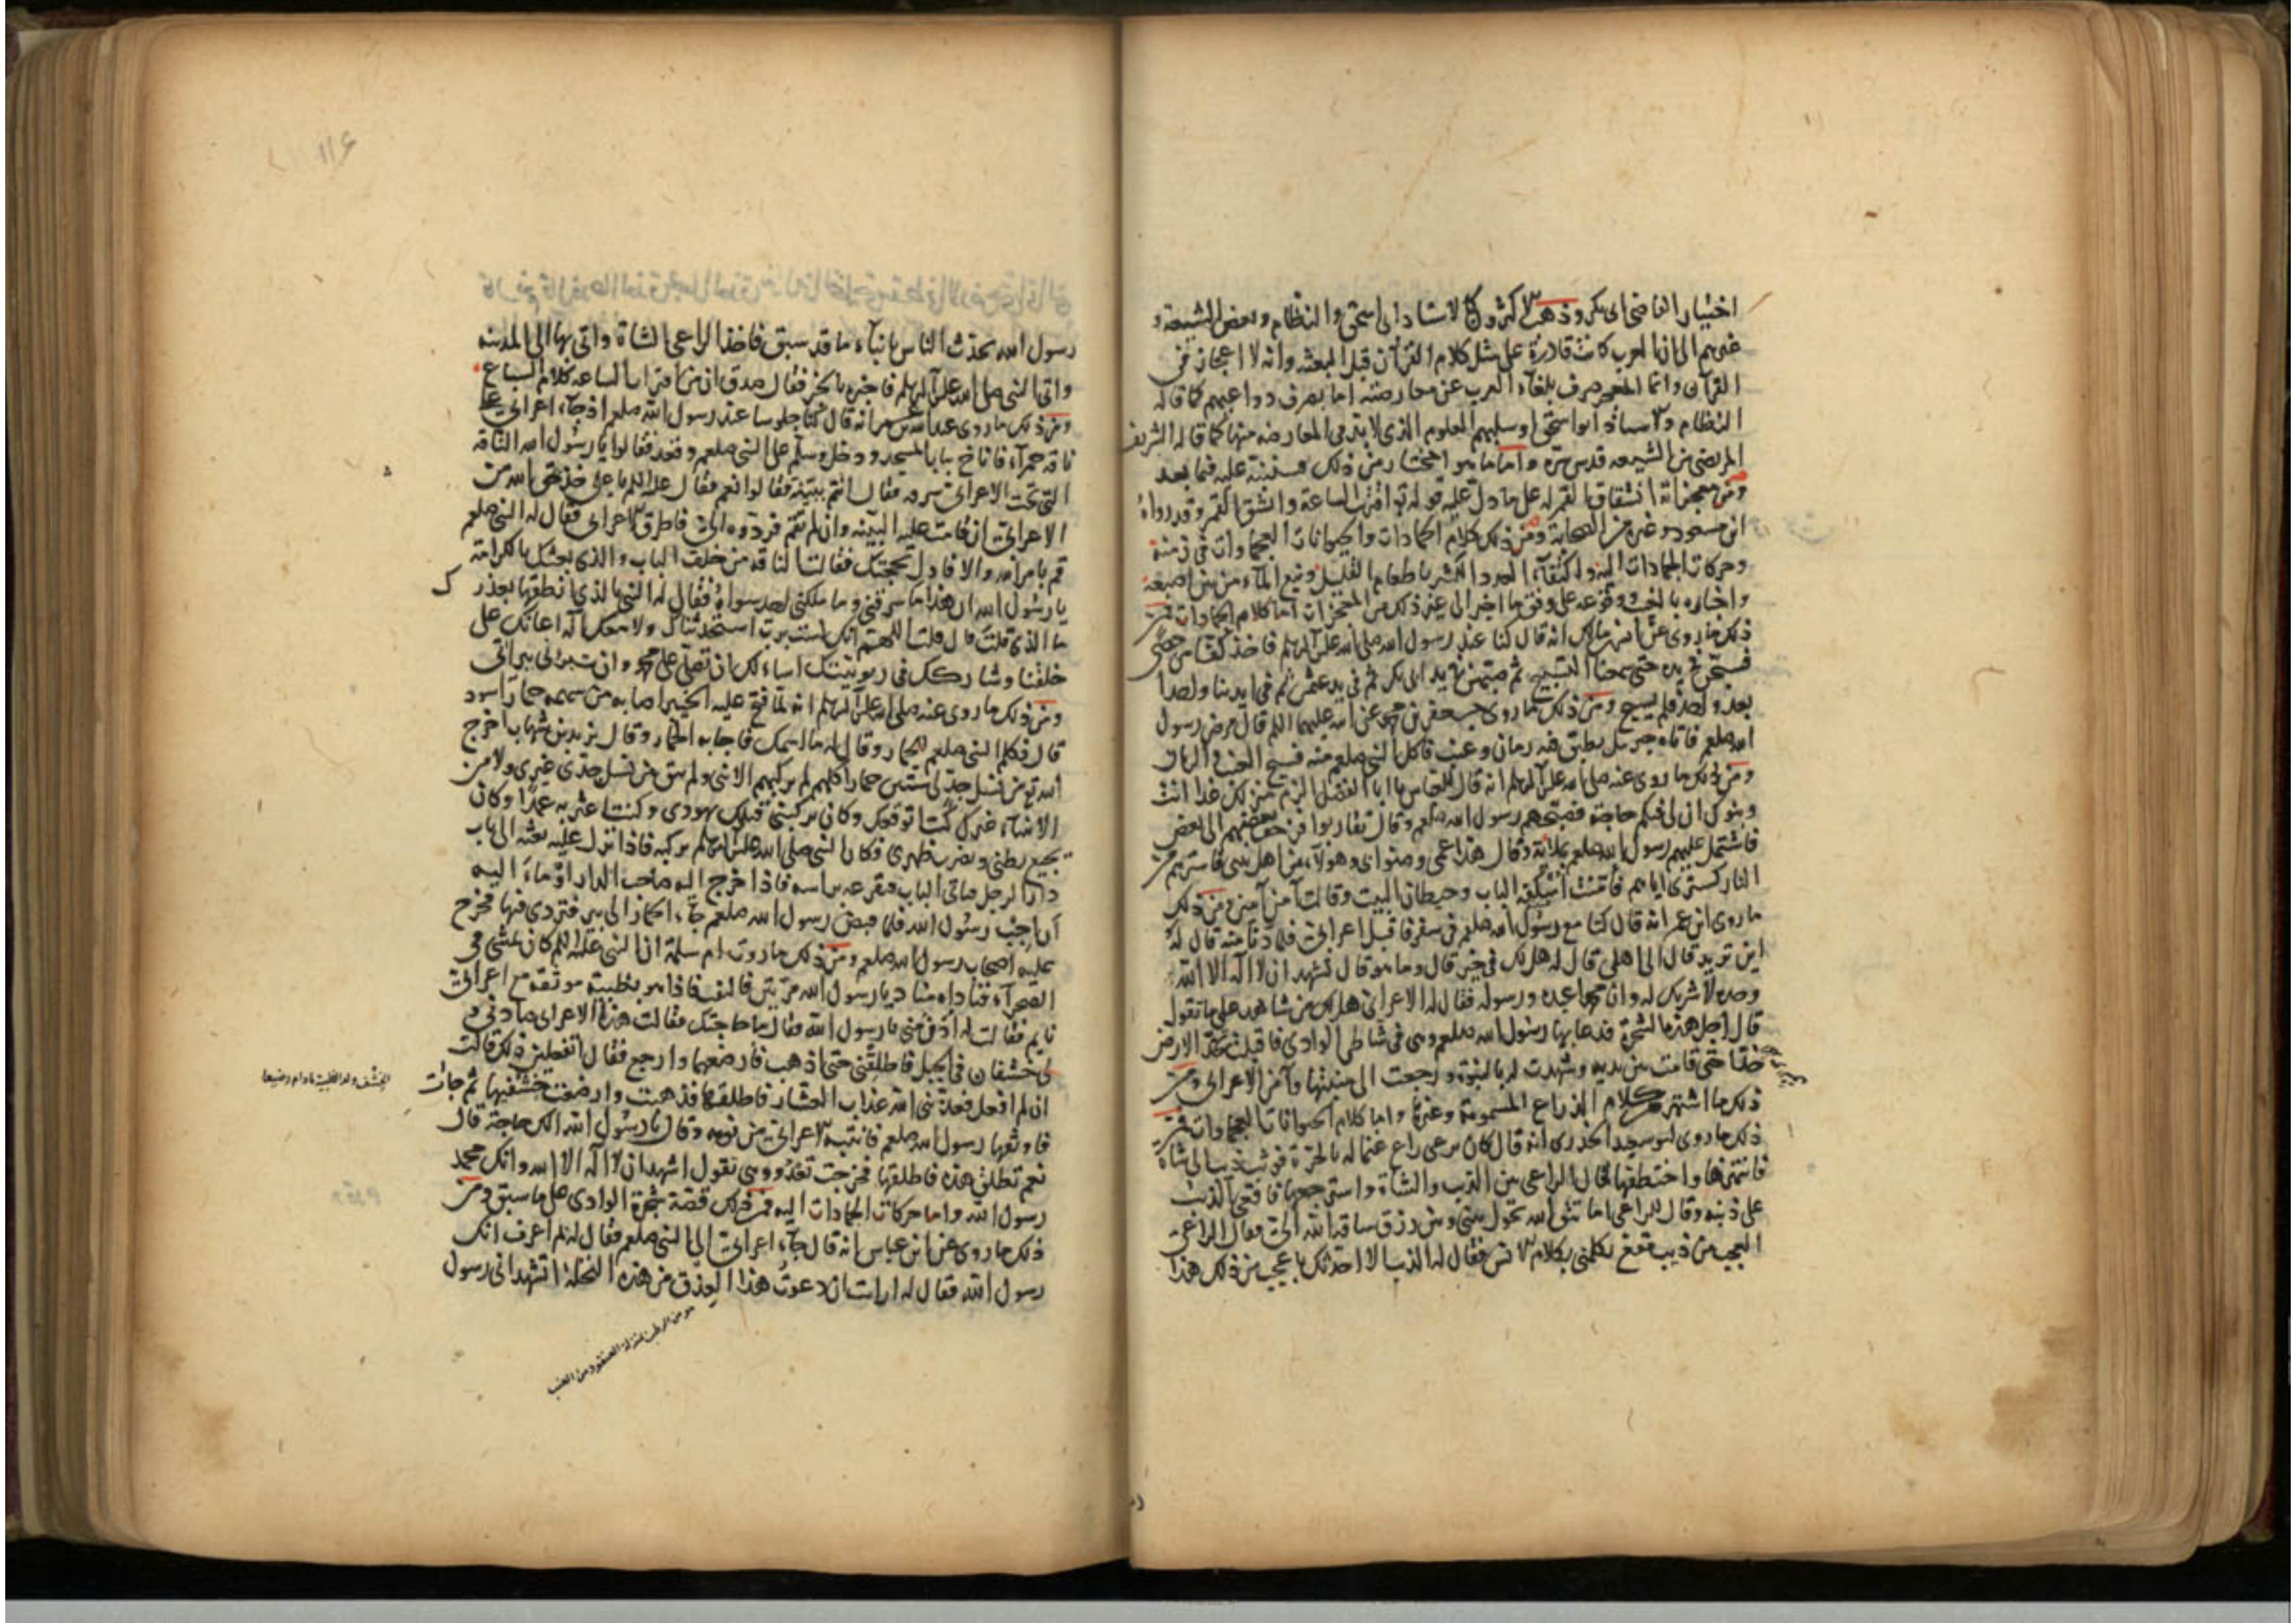 اختيار القاضى ابى بكر وذهب الاكثرون كالاستاد ابى اسحق والنظام وبعض الشيعة و
غيرهم الى ان العرب كانت قادرة على مثل كلام القرآن قبل البعثه وانه لا اعجاز فى
القرآن وانما المعجز صرف بلغآء العرب عن معارضته اما بصرف دواعيهم كما قاله
النظام والاستاذ ابو اسحق او سلبهم العلوم الذى لا بد فى المعارضه منها كما قاله الشريف
المرتضى من الشيعه قدس سره واما ما هو المختار من ذلك فسننبه عليه فيما بعد
ومن معجزاته انشقاق القمر له على ما دل عليه قوله تع اقتربت الساعة وانشق القمر وقد رواه
ابن مسعود وغيره من الصحابة ومن ذلك كلام الجمادات والحيوانات العجماوات فى زمنه
وحركات الجمادات اليه واكتفآء العدد الكثير باطعام القليل ونبع المآء من بين اصبعه
واخباره بالغيب ووقوعه على وفق ما اخبر الى غير ذلك من المعجزات اما كلام الجمادات فمن
ذلك ما روى عن انس بن مالك انه قال كنا عند رسول الله صلى الله عليه وآله وسلم فاخذ كفا من حصى
فسبحن فى يده حتى سمعنا التسبيح ثم صبهن فى يد ابى بكر ثم فى يد عمر ثم فى ايدينا واحدا
بعد واحد فلم يسبح ومن ذلك ما روى جعفر بن محمد عن ابيه عليهما السلم قال مرض رسول
الله صلعم فاتاه جبرئيل بطبق فيه رمان وعنب فاكل النبى صلعم منه فسبح العنب والرمان
ومن ذلك ما روى عنه صلى الله عليه وآله وسلم انه قال للعباس يا ابا الفضل الزم منزلك غدا انت
وبنوك ان لى فيكم حاجة فصبحهم رسول الله صلعم وقال تقاربوا فزحف بعضهم الى بعض
فاشتمل عليهم رسول الله صلعم بملاءة وقال هذا عمى وصنو ابى وهولآء من اهل بيتى فاسترهم من
النار كسترى اياهم فامنت اسكفة الباب وحيطان البيت وقالت آمين آمين ومن ذلك
ما روى ابن عمر انه قال كنا مع رسول الله صلعم فى سفر فاقبل اعرابى فلما دنا منه قال له
اين تريد قال الى اهلى قال له هل لك فى خير قال وما هو قال تشهد ان لا اله الا الله
وحده لا شريك له وان محمدا عبده ورسوله فقال له الاعرابى هل لك من شاهد على ما تقول
قال اجل هذه الشجرة فدعا بها رسول الله صلعم وهى فى شاطى الوادى فاقبلت تخد الارض
خدا حتى قامت بين يديه وشهدت له بالنبوة ورجعت الى منبتها وآمن الاعرابى ومن
ذلك ما اشتهر من كلام الذراع المسمومة وغيرها واما كلام الحيوانات العجماوات فمن
ذلك ما روى ابو سعيد الخدرى انه قال كان يرعى راع غنما له بالحرة فوثب ذيب الى شاة
فانتهزها واختطفها فحال الراعى بين الذيب والشاة واسترجعها فاقعى الذيب
على ذنبه وقال للراعى اما تتق الله تحول بينى وبين رزق ساقه الله الى فقال الراعى
العجب من ذيب مقع يكلمنى بكلام الانس فقال له الذيب الا احدثك باعجب من ذلك هذا
رسول الله يحدث الناس بانبآء ما قد سبق فاخذ الراعى الشاة واتى بها الى المدينه
واتى النبى صلى الله عليه وآله وسلم فاخبره بالخبر فقال صدق ان من اقتراب الساعه كلام السباع
ومن ذلك ما روى عبد الله بن عمر انه قال كنا جلوسا عند رسول الله صلعم اذ جآء اعرابى على
ناقه حمرآء فاناخ بباب المسجد ودخل وسلم على النبى صلعم وقعد فقالوا يا رسول الله الناقه
التى تحت الاعرابى سرقه فقال اثم بينة فقالوا نعم فقال عليه السلم يا على خذ حق الله من
الاعرابى ان قامت عليه البينه وان لم تقم فردوه الى فاطرق الاعرابى فقال له النبى صلعم
قم بامر الله والا فادل بحجتك فقالت الناقه من خلف الباب والذى بعثك بالكرامة
يا رسول الله ان هذا ما سرقنى وما ملكنى احد سواه فقال له النبى بالذى انطقها بعذرك
ما الذى قلت قال قلت اللهم انك لست برب استحدثناك ولا معك اله اعانك على
خلقنا وشاركك فى ربوبيتك اساءلك ان تصلى على محمد وان تبرئنى ببراتى
ومن ذلك ما روى عنه صلى الله عليه وآله وسلم انه لما فتح عليه الخيبر اصابه من سهمه حمار اسود
قال فكلم النبى صلعم الحمار وقال له ما اسمك فاجابه الحمار وقال يزيد بن شهاب اخرج
الله تع من نسل جدى ستين حمارا كلهم لم يركبهم الا نبى ولم يبق من نسل جدى غيرى ولا من
الانبيآء غيرك كنت اتوقعك وكان يركبنى قبلك يهودى وكنت اعثر به عمدا وكان
يجيع بطنى ويضرب ظهرى وكان النبى صلى الله عليه وآله وسلم يركبه فاذا نزل عليه بعثه الى باب
دار الرجل فياتى الباب فيقرعه براسه فاذا خرج اليه صاحب الدار اومآء اليه
ان اجب رسول الله فلما قبض رسول الله صلعم جآء الحمار الى بير فتردى فيها فخرج
عليه اصحاب رسول الله صلعم ومن ذلك ما روت ام سلمة ان النبى عليه السلم كان يمشى فى
الصحرآء فناداه مناد يا رسول الله مرتين فالتفت فاذا هو بظبية موثقة مع اعرابى
نايم فقالت له ادن منى يا رسول الله فقال ما حاجتك فقالت هذا الاعرابى صادنى و
لى خشفان فى الجبل فاطلقنى حتى اذهب فارضعهما وارجع فقال اتفعلين ذلك قالت
ان لم افعل فعذبنى الله عذاب العشار فاطلقها فذهبت وارضعت خشفيها ثم جات
فاوثقها رسول الله صلعم فانتبه الاعرابى من نومه وقال يا رسول الله الك حاجة قال
نعم تطلق هذه فاطلقها فخرجت تعدو وهى تقول اشهد ان لا اله الا الله وانك محمد
رسول الله واما حركات الجمادات اليه فمن ذلك قصة شجرة الوادى على ما سبق ومن
ذلك ما روى عن ابن عباس انه قال جآء اعرابى الى النبى صلعم فقال له بم اعرف انك
رسول الله فقال له ارايت ان دعوت هذا العذق من هذه النخلة اتشهد انى رسول
الخشف ولد الظبية مادام رضيعا
هو من الرطب بمنزلة العنقود من العنب